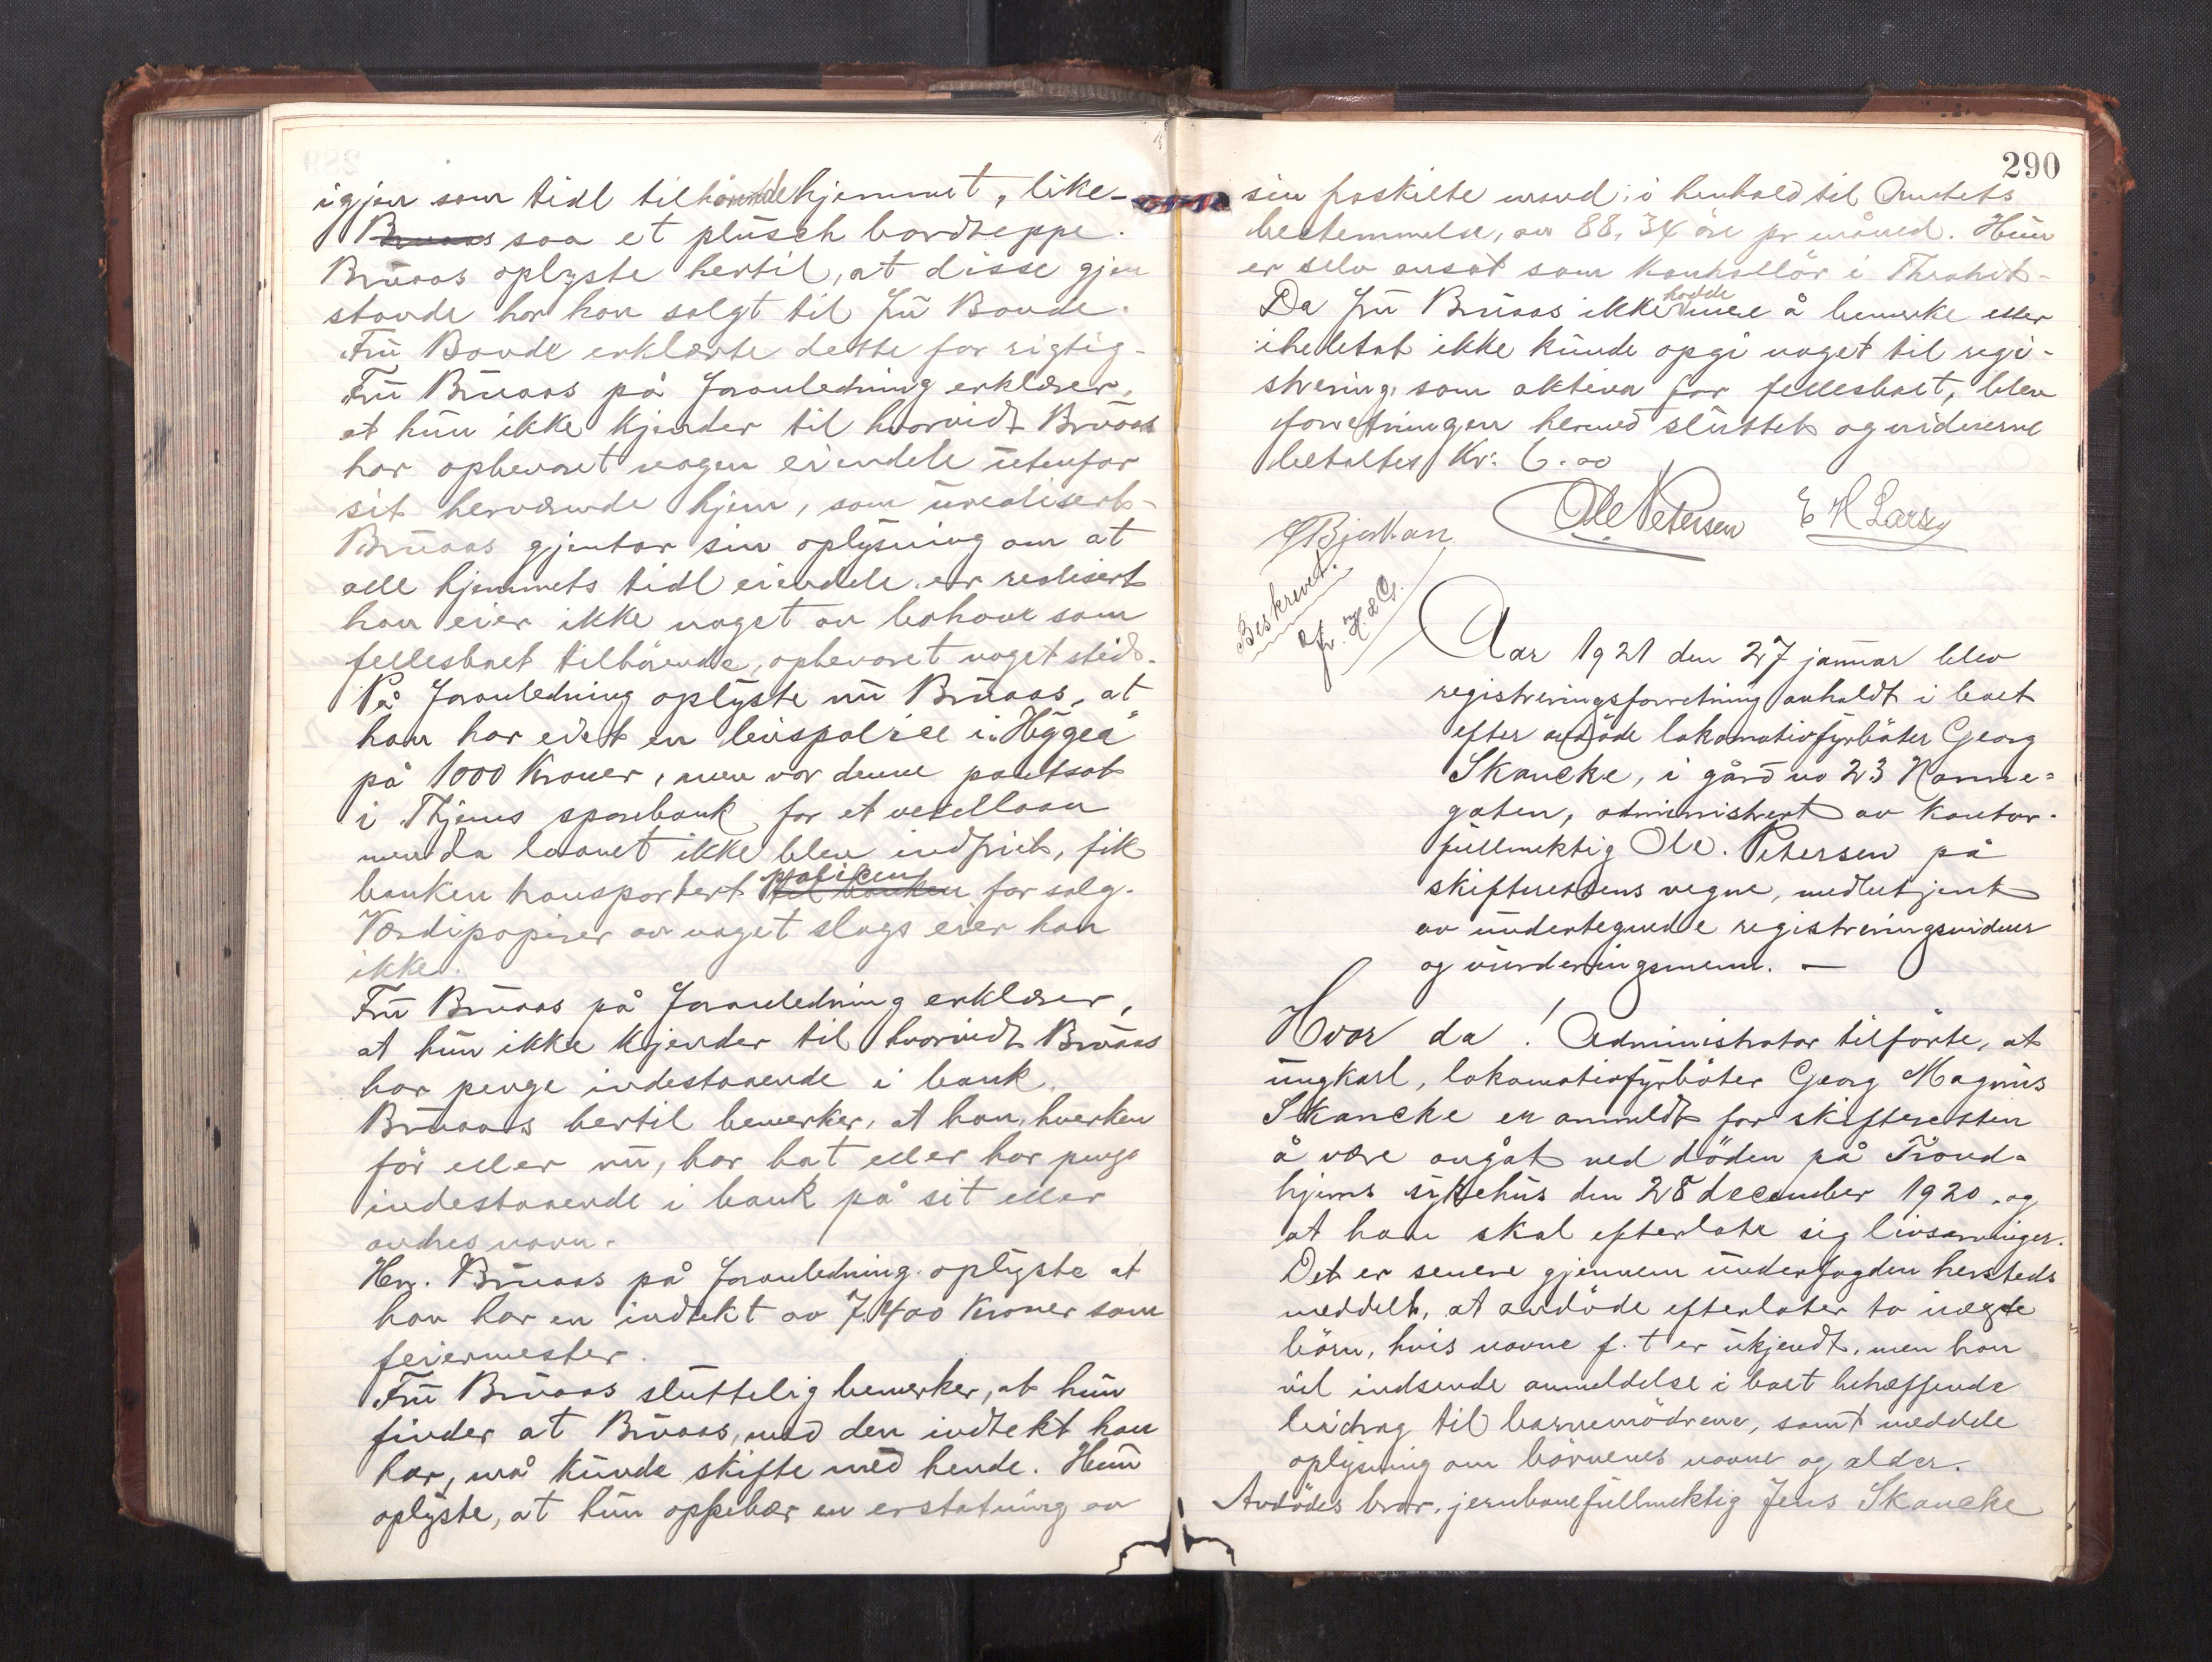 igjen som tidl tilhørende hjemmet, like-
Bruaas saa et plüsch bordteppe.
Bruaas oplyste hertil, at disse gjen
stande har han solgt til Fru Bonde.
Fru Bonde erklærte dette for rigtig-
Fru Bruaas på foranledning erklærer,
at hun ikke kjender til hvorvidt Bruaas
har opbevaret nogen eiendele utenfor
sit herværende hjem, som urealisert-
Bruaas gjentar sin oplysning om at
alle hjemmets tidl eiendele er realisert
han eier ikke noget av bohave som
fellesboet tilhørende, opbevaret noget sted.
På foranledning oplyste nu Bruaas, at
han har eiet en livspolice i "Hygea"
på 1000 Kroner, men var denne pantsat
i sparebank for et veksellaan
men da laanet ikke blev indfriet, fik
banken transportert til banken policen for salg.
Værdipapirer av noget slags eier han
ikke.
Fru Bruaas på foranledning erklærer,
at hun ikke kjender til hvorvidt Bruaas
har penge indestaaende i bank.
Bruaas hertil bemerker, at han, hverken
før eller nu, har hat eller har penge
indestaaende i bank på sit eller
andres navn.
Hr. Bruaas på foranledning oplyste at
han har en indtekt av 7.400 Kroner som
feiermester.
Fru Bruaas sluttelig bemerker, at hun
finder at Bruaas, med den indtekt han
har, må kunde skifte med hende. Hun
oplyste, at hun oppebær en erstatning av
290
sin fraskilte mand, i henhold til Amtets
bestemmelse, av 88,34 øre pr måned. Hun
er selv ansat som kontrollør i
Da Fru Bruaas ikke hadde mere å bemerke eller
iheletat ikke kunde opgi noget til regi-
strering som aktiva for fellesboet, blev
forretningen hermed sluttet og vidnerne
betaltes Kr: 6.00
Ole Petersen E H Larsen
Beskrevet.
Aar 1921 den 27 januar blev
registreringsforretning avholdt i boet
efter avdøde lokomotivfyrbøter Georg
Skancke, i gård no 23 Nonne-
gaten, administrert av kontor-
fullmektig Ole. Petersen på
skifterettens vegne, medbetjent
av undertegnede registreringsvidner
og vurderingsmenn. —
Hvor da! Administrator tilførte, at
ungkarl, lokomotivfyrbøter Georg Magnus
Skancke er anmeldt for skifteretten
å være avgåt ved døden på Trond-
hjems sykehus den 28 december 1920. og
at han skal efterlate sig livsarvinger.
Det er senere gjennem underfogden hersteds
meddelt, at avdøde efterlater to uægte
børn, hvis navne f. t er ukjendt, men han
vil indsende anmeldelse i boet betreffende
bidrag til barnemødrene, samt meddele
oplysning om børnenes navne og alder.
Avdødes bror, jernbanefullmektig Jens Skancke